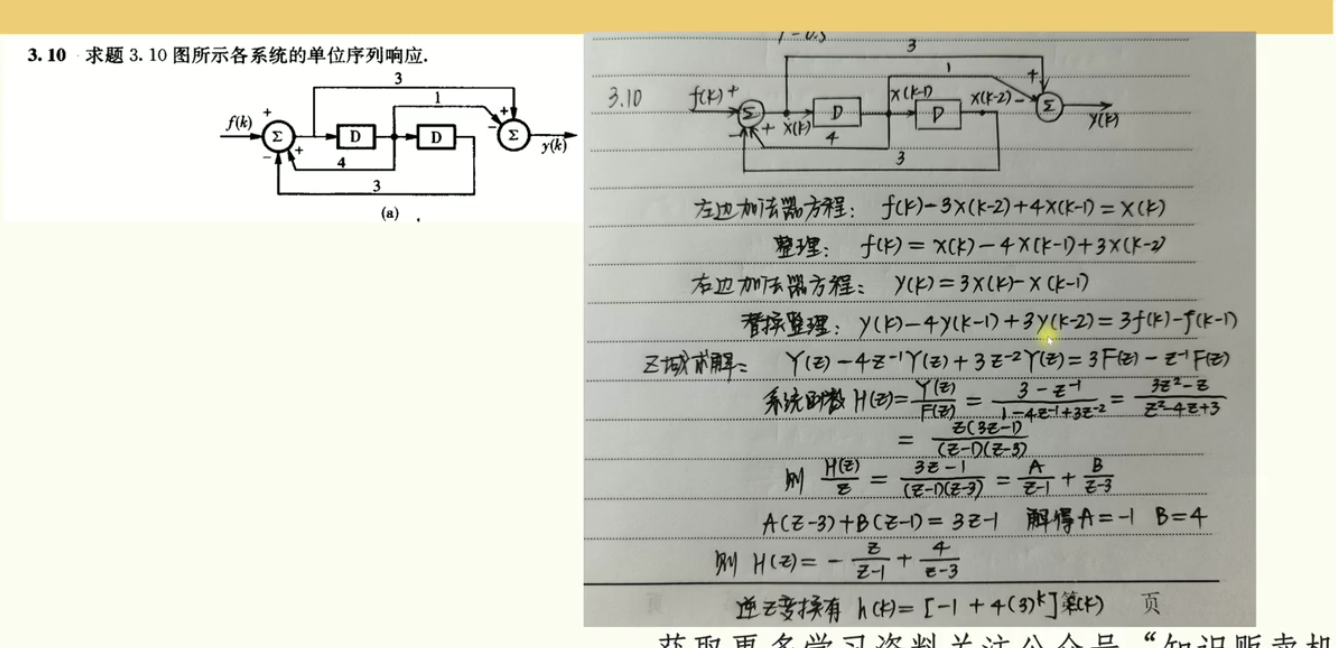 3.10 求题 3.10 图所示各系统的单位序列响应.
3
1
f(k)
+
Σ
D
D
+
-
Σ
y(k)
-
+
4
3
(a)
3
1
+
3.10
f(k)
+
Σ
x(k)
D
x(k-1)
D
x(k-2)
-
Σ
y(k)
-
+
4
3
左边加法器方程： f(k)-3x(k-2)+4x(k-1)=x(k)
整理： f(k)=x(k)-4x(k-1)+3x(k-2)
右边加法器方程： y(k)=3x(k)-x(k-1)
替换整理： y(k)-4y(k-1)+3y(k-2)=3f(k)-f(k-1)
Z域求解： Y(z)-4z⁻¹Y(z)+3z⁻²Y(z)=3F(z)-z⁻¹F(z)
系统函数 H(z)=Y(z)/F(z) = (3-z⁻¹)/(1-4z⁻¹+3z⁻²) = (3z²-z)/(z²-4z+3)
= z(3z-1)/((z-1)(z-3))
则 H(z)/z = (3z-1)/((z-1)(z-3)) = A/(z-1) + B/(z-3)
A(z-3)+B(z-1)=3z-1 解得A=-1 B=4
则 H(z)= - z/(z-1) + 4/(z-3)
逆z变换有 h(k)=[-1+4(3)ᵏ]ε(k)
第 页
获取更多学习资料关注公众号“知识贩卖机